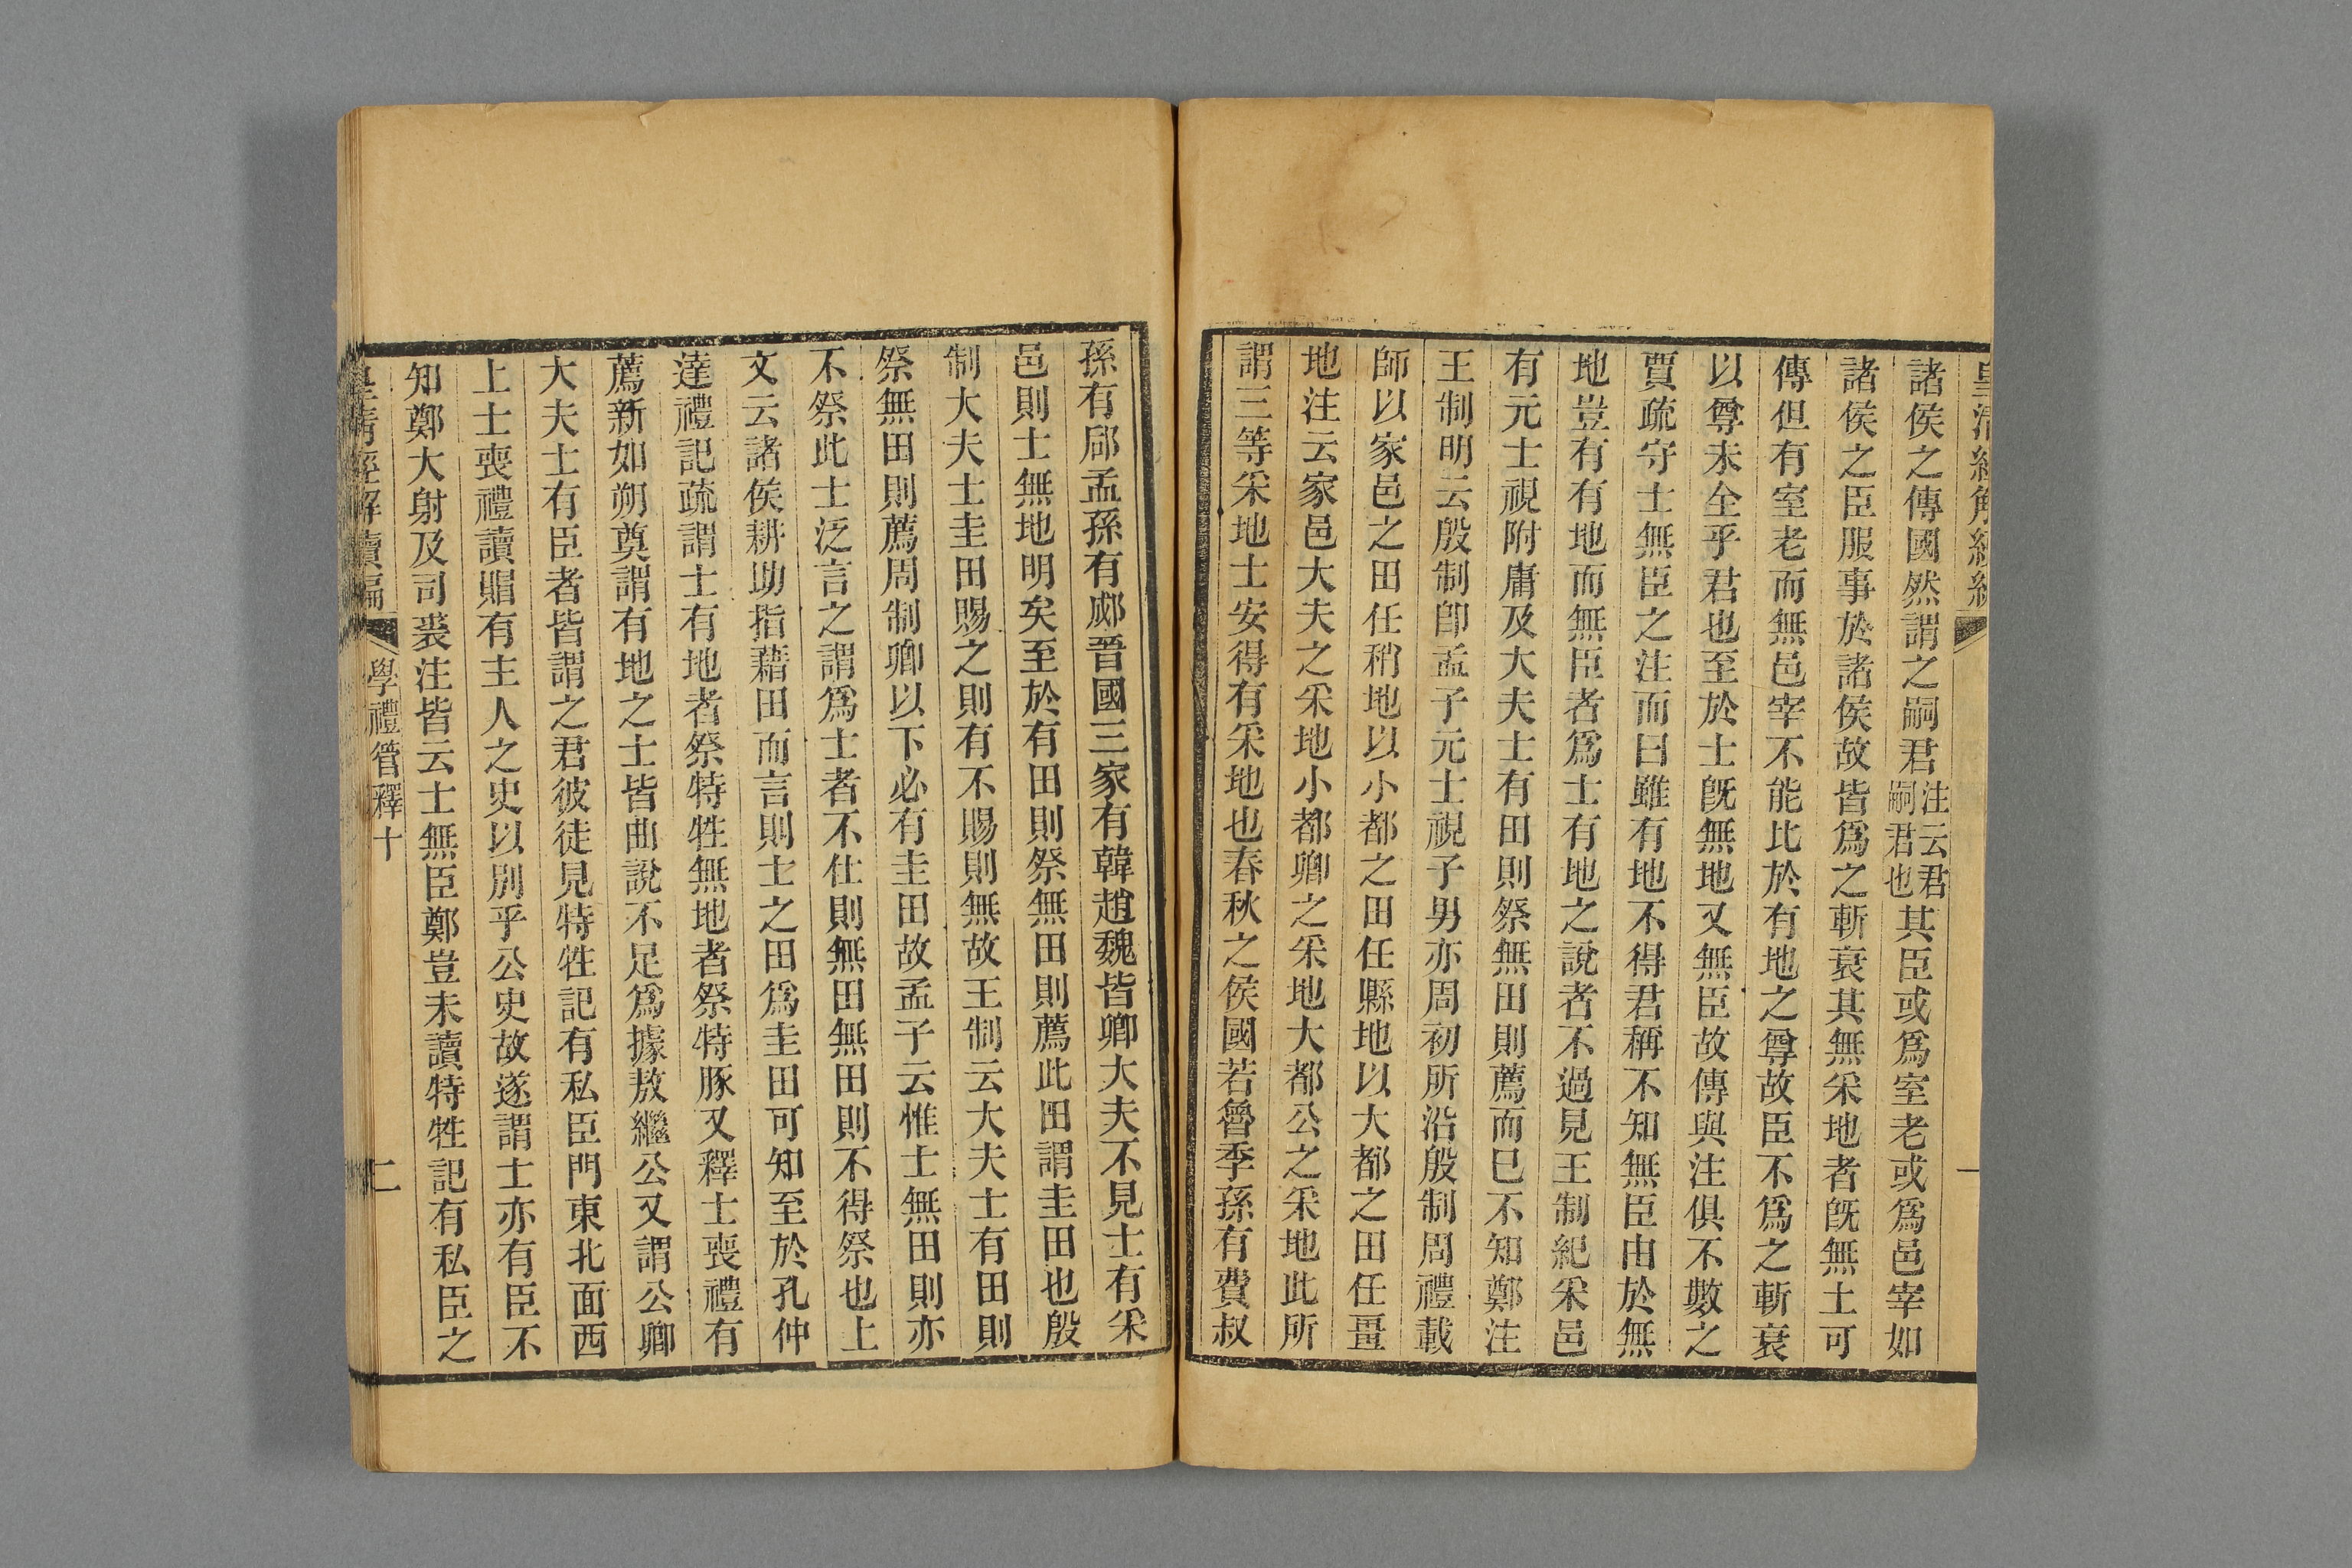 皇清經解續編
一
諸侯之傳國然謂之嗣君注云君嗣君也其臣或爲室老或爲邑宰如
諸侯之臣服事於諸侯故皆爲之斬衰其無采地者旣無土可
傳但有室老而無邑宰不能比於有地之尊故臣不爲之斬衰
以尊未全乎君也至於士旣無地又無臣故傳與注俱不數之
賈疏守士無臣之注而曰雖有地不得君稱不知無臣由於無
地豈有有地而無臣者爲士有地之說者不過見王制紀采邑
有元士視附庸及大夫士有田則祭無田則薦而已不知鄭注
王制明云殷制卽孟子元士視子男亦周初所沿殷制周禮載
師以家邑之田任稍地以小都之田任縣地以大都之田任畺
地注云家邑大夫之采地小都卿之采地大都公之采地此所
謂三等采地士安得有采地也春秋之侯國若魯季孫有費叔
孫有郈孟孫有郕晉國三家有韓趙魏皆卿大夫不見士有采
邑則士無地明矣至於有田則祭無田則薦此田謂圭田也殷
制大夫士圭田賜之則有不賜則無故王制云大夫士有田則
祭無田則薦周制卿以下必有圭田故孟子云惟士無田則亦
不祭此士泛言之謂爲士者不仕則無田無田則不得祭也上
文云諸侯耕助指藉田而言則士之田爲圭田可知至於孔仲
達禮記疏謂士有地者祭特牲無地者祭特豚又釋士喪禮有
薦新如朔奠謂有地之士皆曲說不足爲據敖繼公又謂公卿
大夫士有臣者皆謂之君彼徒見特牲記有私臣門東北面西
上士喪禮讀賵有主人之史以別乎公史故遂謂士亦有臣不
知鄭大射及司裘注皆云士無臣鄭豈未讀特牲記有私臣之
皇清經解續編
學禮管釋十
二